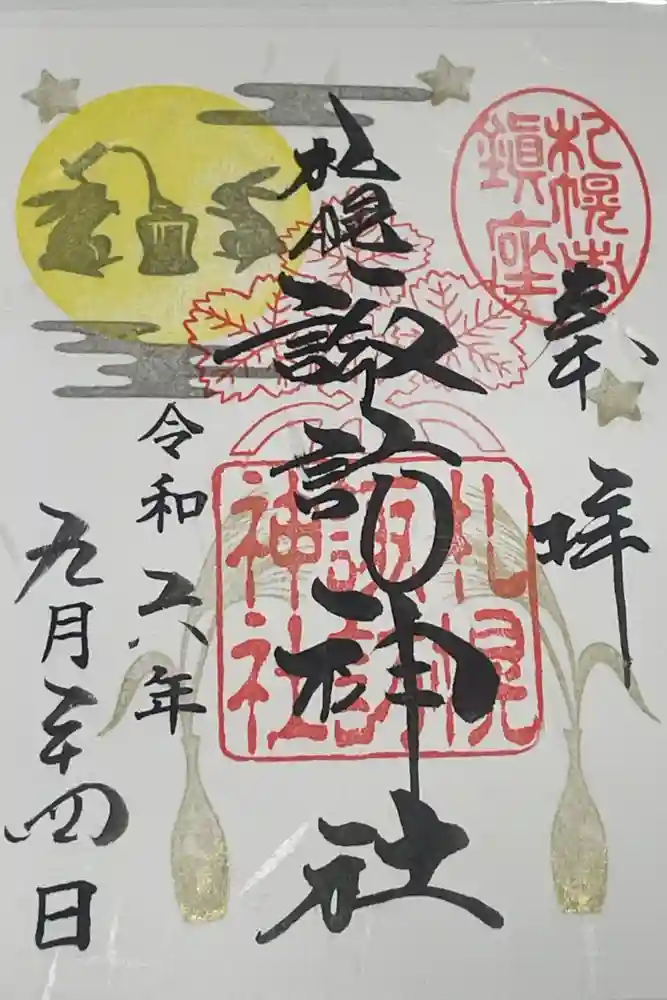 札幌市
鎮座
奉拝
札幌
諏訪
神社
札幌諏訪神社
令和六年
九月二十四日